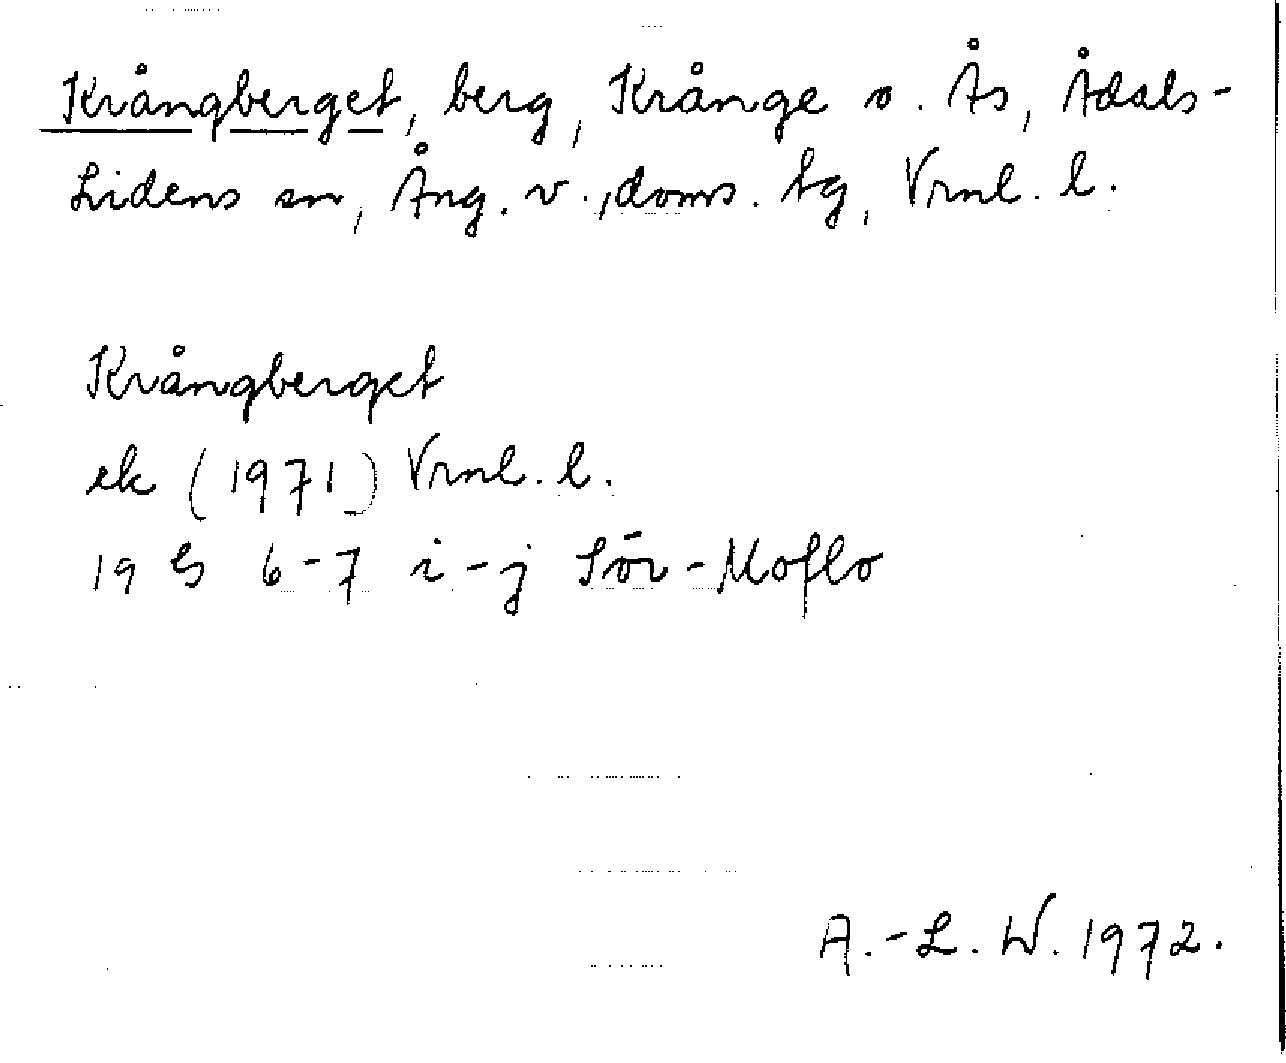 Krångberget, berg, Krånge o. Ås, Ådals-
Lidens sn, Ång. v., doms. tg, Vrnl. l.
Krångberget
ek (1971) Vrnl. l.
19 G 6-7 i-j Sör-Moflo
A.-L. W. 1972.